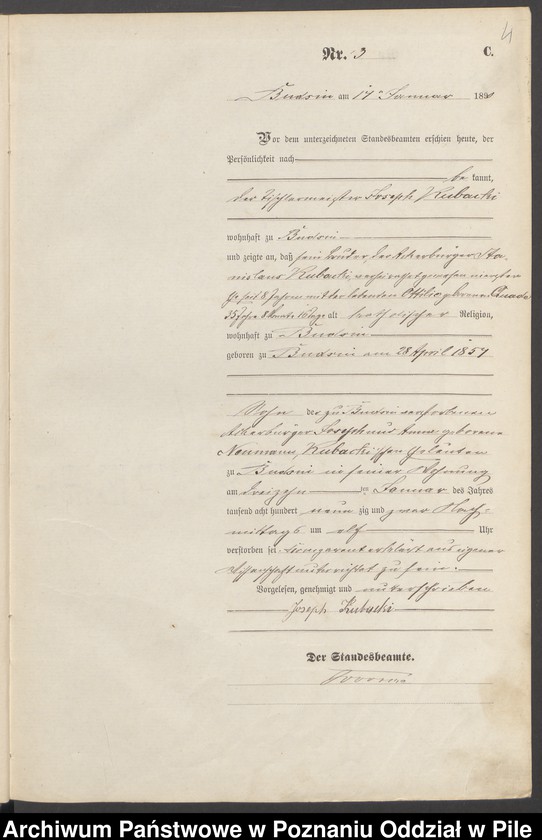 4
Nr. 3 C.
Budsin am 14 Januar 1890
Vor dem unterzeichneten Standesbeamten erschien heute, der
Persönlichkeit nach
be kannt,
der Tischlermeister Joseph Kubacki
wohnhaft zu Budsin
und zeigte an, daß sein Bruder, der Ackerbürger Sta-
nislaus Kubacki, verheirathet gewesen
seit 8 Jahren mit der lebenden Ottilie geborenen
alt katholischer Religion,
wohnhaft zu Budsin
geboren zu Budsin am 28 April 1854
Sohn der zu Budsin verstorbenen
Ackerbürger Joseph und Anna geborene
Neumann, Kubacki'schen Eheleuten
zu Budsin in seiner Wohnung
am dreizehn ten Januar des Jahres
tausend acht hundert neun zig und zwar Nach-
mittags um elf Uhr
verstorben sei. erklärt aus eigener
Wissenschaft unterrichtet zu sein.
Vorgelesen, genehmigt und unterschrieben
Joseph Kubacki
Der Standesbeamte.
Archiwum Państwowe w Poznaniu Oddział w Pile